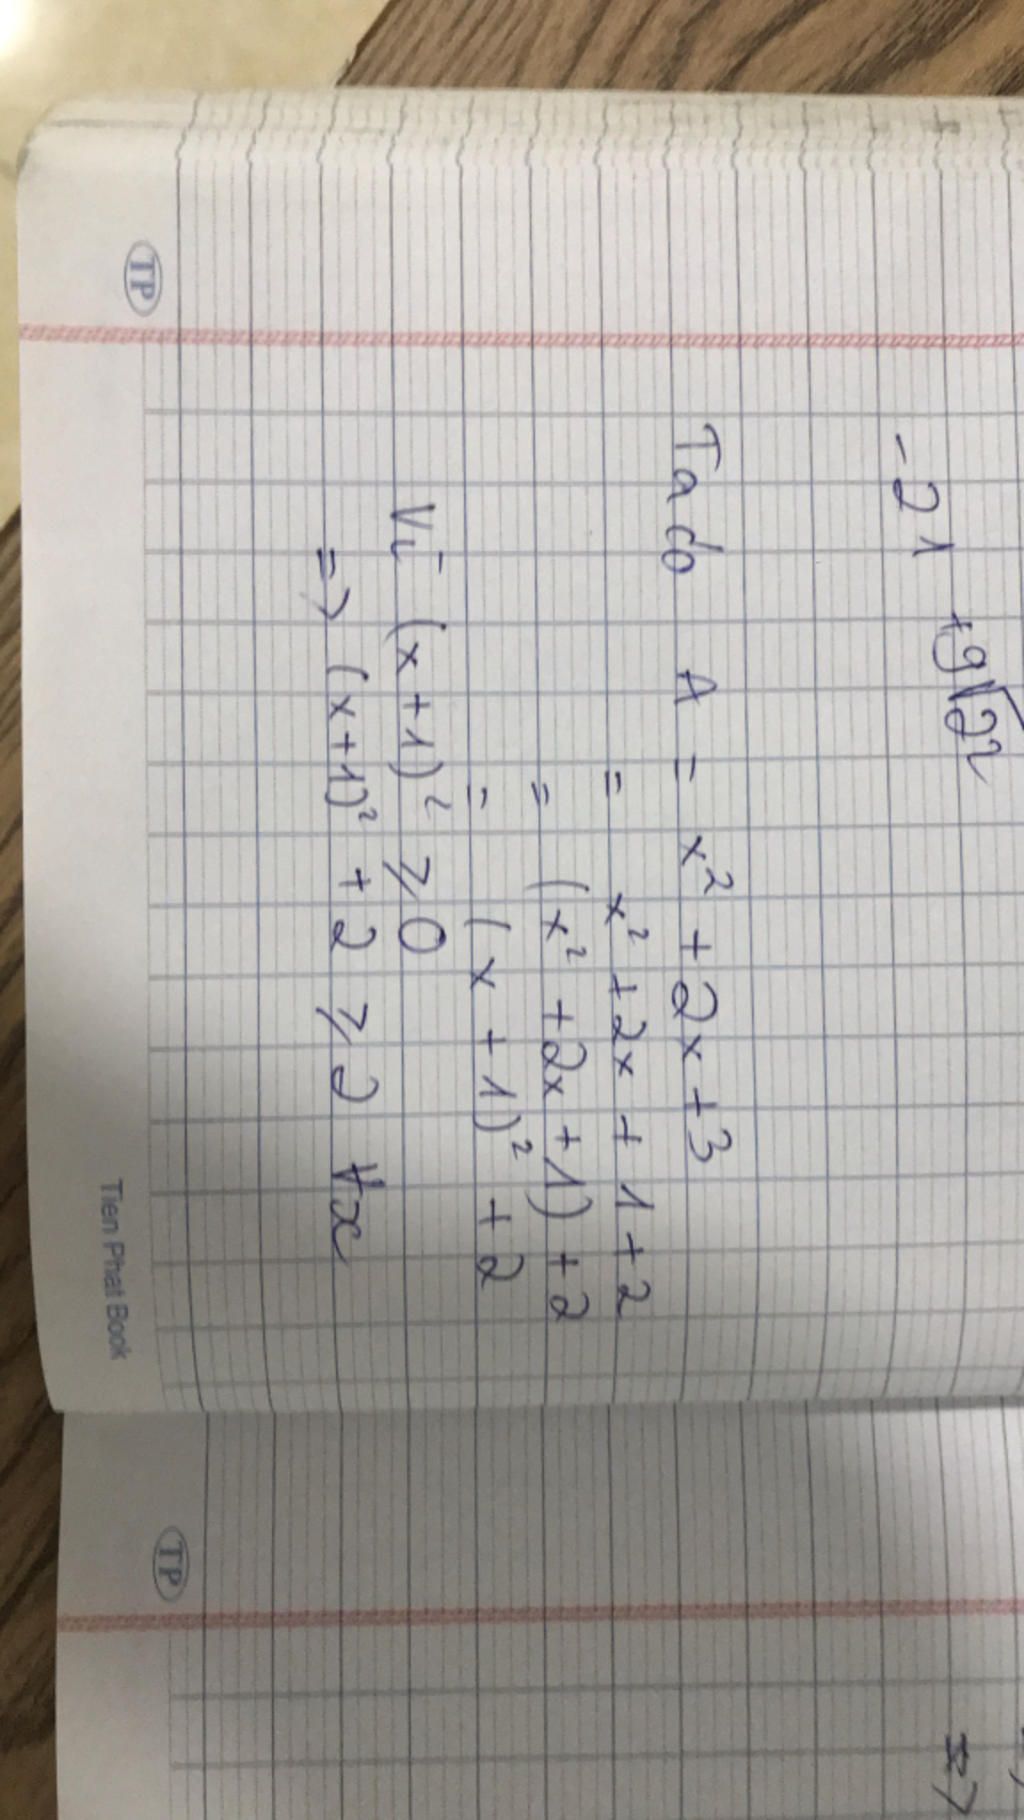 +9√22
-21
Ta có A = x² + 2x + 3
= x² + 2x + 1 + 2
= (x² + 2x + 1) + 2
= (x + 1)² + 2
Vì (x + 1)² ⩾ 0
=> (x+1)² + 2 ⩾ 2 ∀x
TP
Tien Phat Book
=>
TP